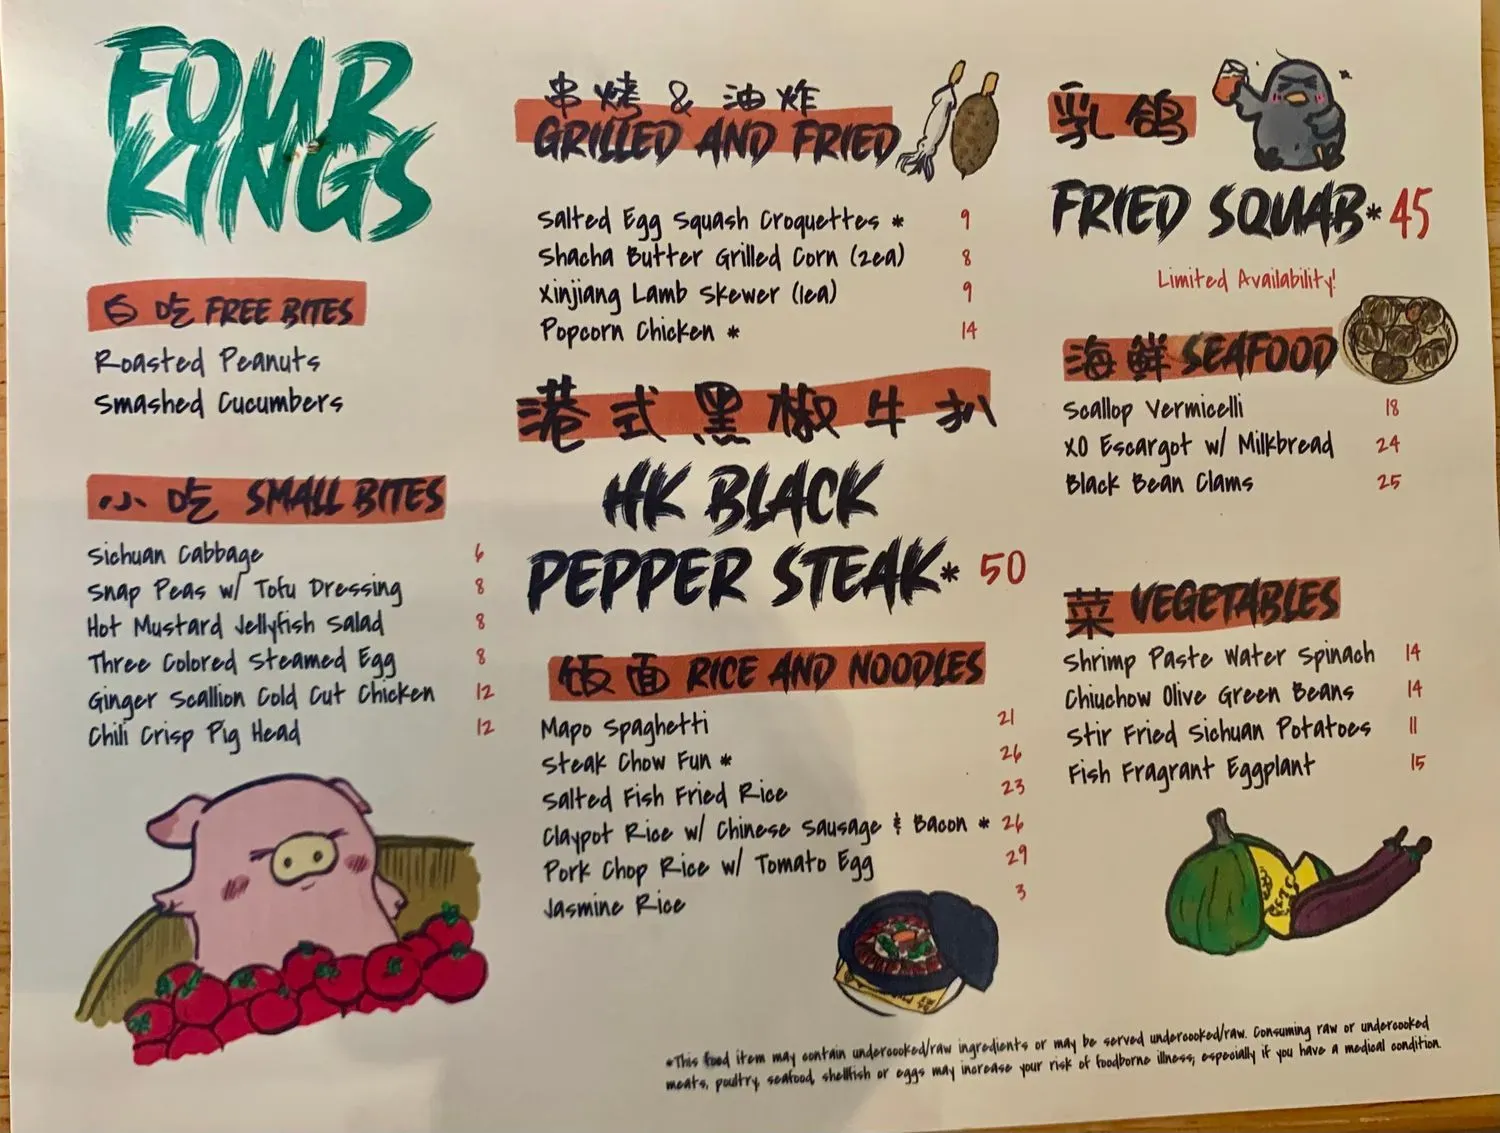 FOUR
KINGS
白吃 FREE BITES
Roasted Peanuts
Smashed Cucumbers
小吃 SMALL BITES
Sichuan Cabbage 6
Snap Peas w/ Tofu Dressing 8
Hot Mustard Jellyfish Salad 8
Three Colored Steamed Egg 8
Ginger Scallion Cold Cut Chicken 12
Chili Crisp Pig Head 12
串烤 & 油炸
GRILLED AND FRIED
Salted Egg Squash Croquettes * 9
Shacha Butter Grilled Corn (2ea) 8
Xinjiang Lamb Skewer (1ea) 9
Popcorn Chicken * 14
港式黑椒牛扒
HK BLACK
PEPPER STEAK* 50
饭面 RICE AND NOODLES
Mapo Spaghetti 21
Steak Chow Fun * 26
Salted Fish Fried Rice 23
Claypot Rice w/ Chinese Sausage & Bacon * 26
Pork Chop Rice w/ Tomato Egg 29
Jasmine Rice 3
乳鸽
FRIED SQUAB* 45
Limited Availability!
海鲜 SEAFOOD
Scallop Vermicelli 18
XO Escargot w/ Milkbread 24
Black Bean Clams 25
菜 VEGETABLES
Shrimp Paste Water Spinach 14
Chiuchow Olive Green Beans 14
Stir Fried Sichuan Potatoes 11
Fish Fragrant Eggplant 15
*This food item may contain undercooked/raw ingredients or may be served undercooked/raw. Consuming raw or undercooked
meats, poultry, seafood, shellfish or eggs may increase your risk of foodborne illness, especially if you have a medical condition.